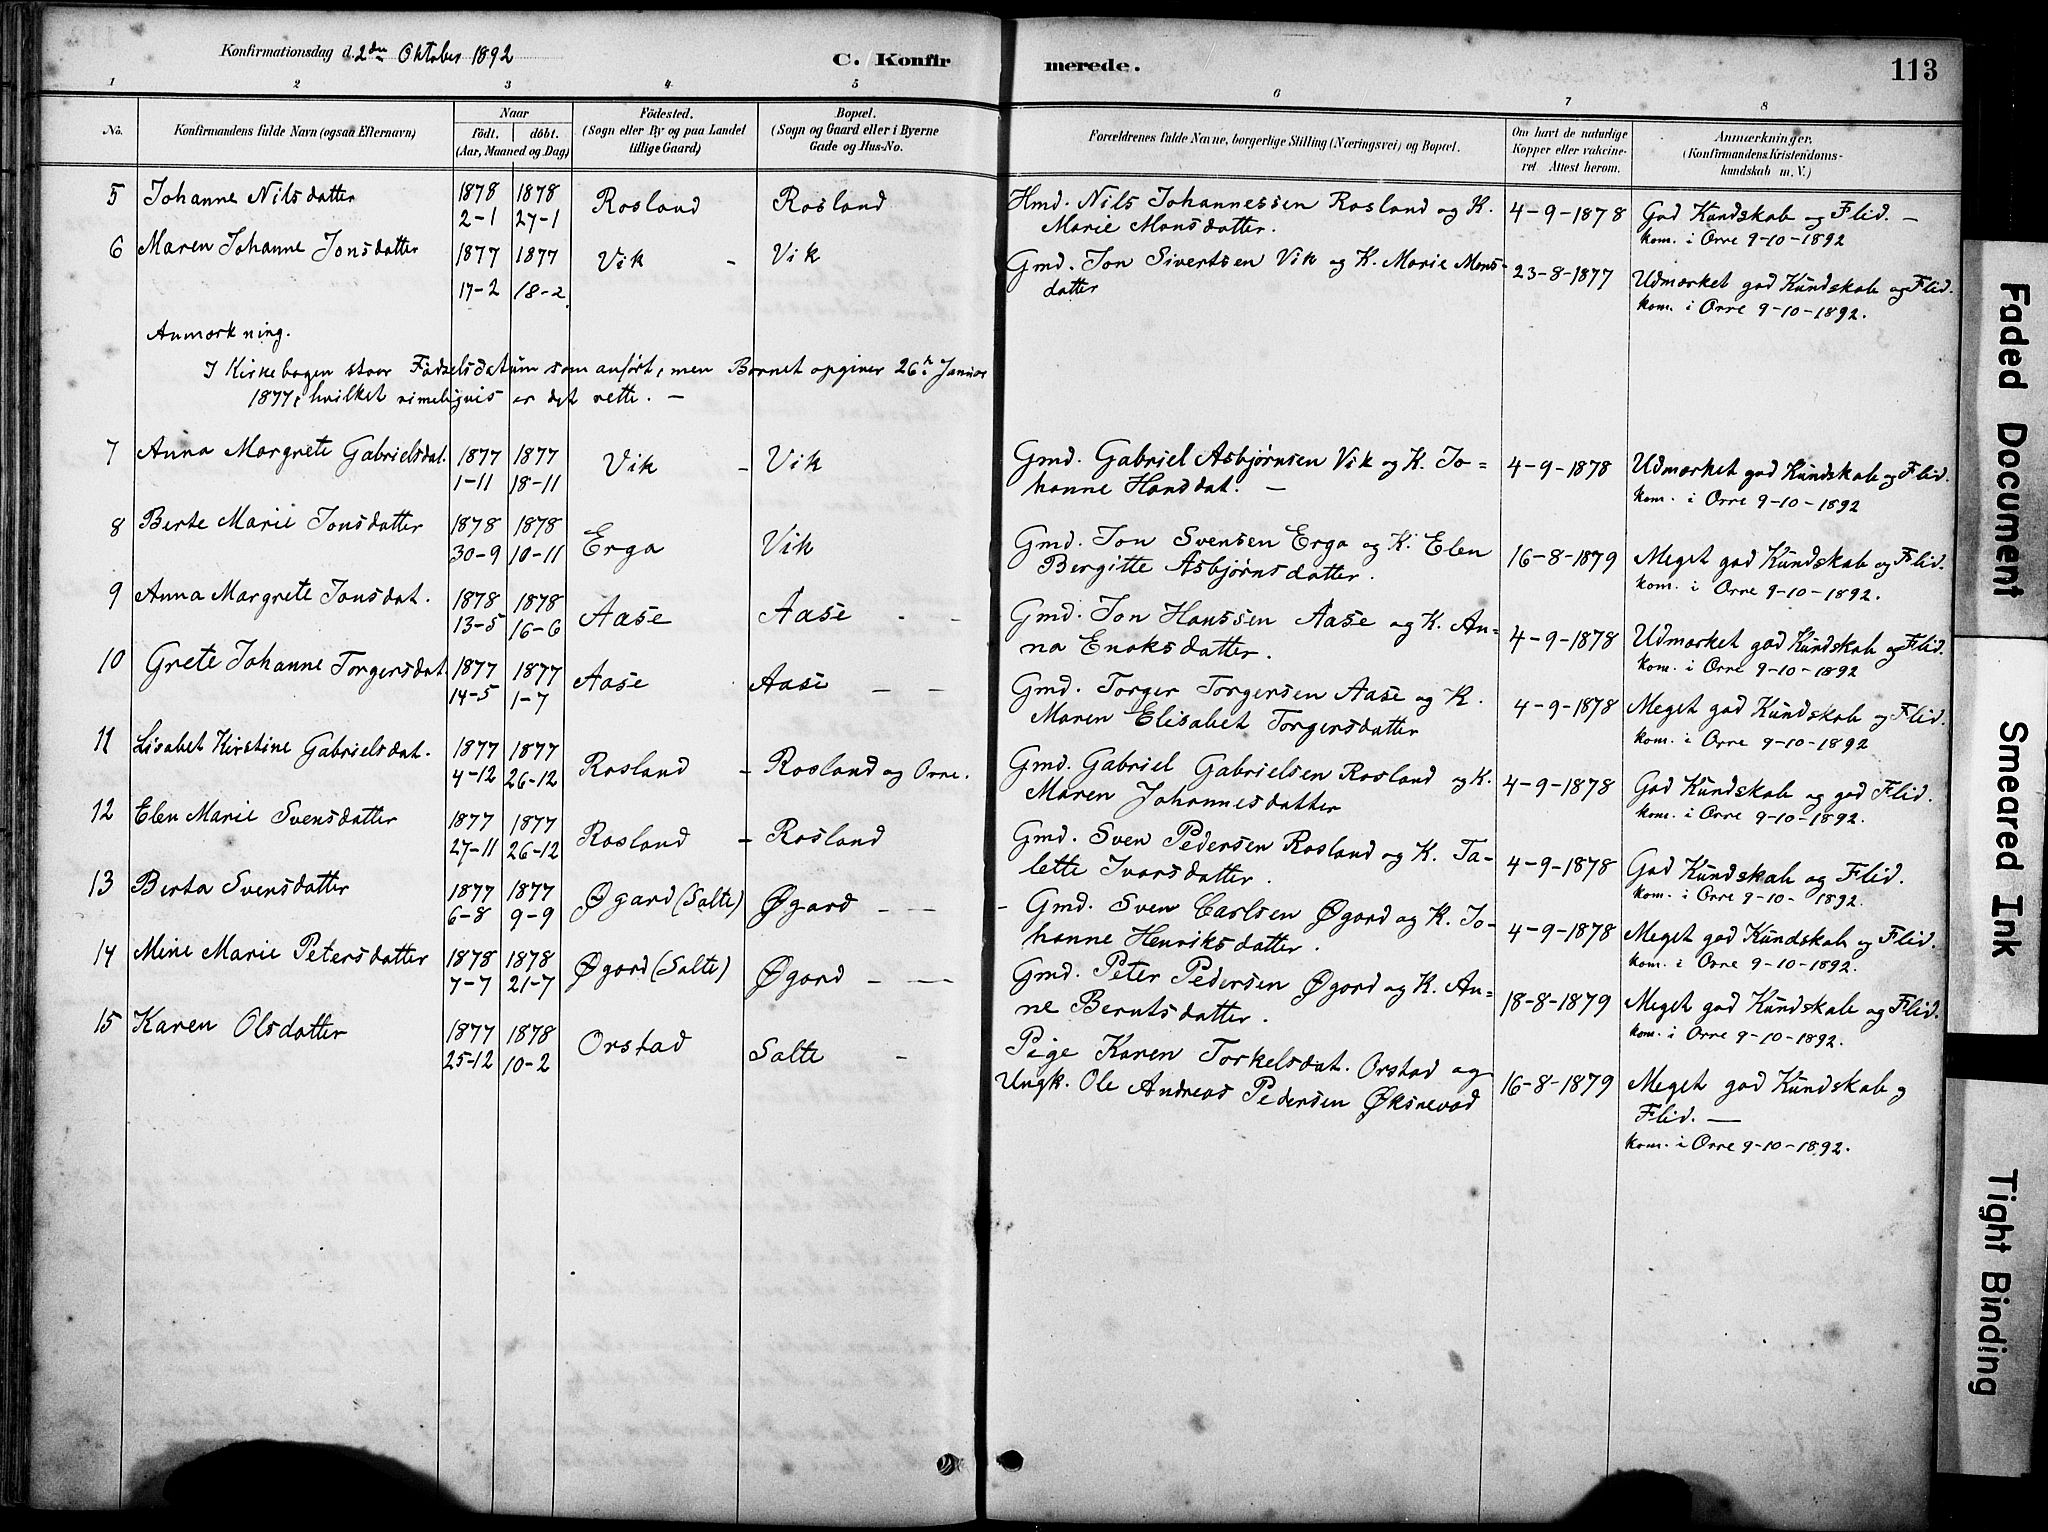 Konfirmationsdag d. 2den Oktober 1892
C. Konfirmerede.
113
1 2 3 4 5 6 7 8
No.
Konfirmandens fulde Navn (ogsaa Efternavn)
Naar
födt. döbt.
(Aar, Maaned og Dag)
Födested.
(Sogn eller By og paa Landet
tillige Gaard)
Bopæl.
(Sogn og Gaard eller i Byerne
Gade og Hus-No.
Forældrenes fulde Navne, borgerlige Stilling (Næringsvei) og Bopæl.
Om havt de naturlige
Kopper eller vakcine-
ret Attest herom.
Anmærkninger.
(Konfirmandens Kristendoms-
kundskab m. V.)
5 Johanne Nilsdatter 1878 1878 Rosland Rosland Hmd. Nils Johannessen Rosland og K. 4-9-1878 God Kundskab og Flid. -
2-1 27-1 Marie Monsdatter. kom. i Orre 9-10-1892
6 Maren Johanne Jonsdatter 1877 1877 Vik - Vik Gmd. Jon Sivertsen Vik og K. Marie Mons- 23-8-1877 Udmærket god Kundskab og Flid.
17-2 18-2 datter kom. i Orre 9-10-1892.
Anmærkning.
I Kirkebogen staar Fødselsdatum som anført, men Barnet opgiver 26de Januar
1877, hvilket rimeligvis er det rette. -
7 Anna Margrete Gabrielsdat. 1877 1877 Vik - Vik Gmd. Gabriel Asbjørnsen Vik og K. Jo= 4-9-1878 Udmærket god Kundskab og Flid.
1-11 18-11 hanne Hansdat. - kom. i Orre 9-10-1892
8 Berte Marie Jonsdatter 1878 1878 Erga Vik Gmd. Jon Svensen Erga og K. Elen 16-8-1879 Meget god Kundskab og Flid.
30-9 10-11 Bergitte Asbjørnsdatter. kom. i Orre 9-10-1892.
9 Anna Margrete Jonsdat. 1878 1878 Aase Aase - - Gmd. Jon Hanssen Aase og K. An= 4-9-1878 Udmærket god Kundskab og Flid.
13-5 16-6 na Enoksdatter. kom. i Orre 9-10-1892
10 Grete Johanne Torgersdat. 1877 1877 Aase Aase - - Gmd. Torger Torgersen Aase og K. 4-9-1878 Meget god Kundskab og Flid.
14-5 1-7 Maren Elisabet Torgersdatter kom. i Orre 9-10-1892
11 Lisabet Kirstine Gabrielsdat. 1877 1877 Rosland - Rosland og Orre. Gmd. Gabriel Gabrielsen Rosland og K. 4-9-1878 God Kundskab og god Flid.
4-12 26-12 Maren Johannesdatter kom. i Orre 9-10-1892.
12 Elen Marie Svensdatter 1877 1877 Rosland - Rosland Gmd. Sven Pedersen Rosland og K. Ta- 4-9-1878 God Kundskab og Flid.
27-11 26-12 lette Ivarsdatter. kom. i Orre 9-10-1892.
13 Berta Svensdatter 1877 1877 Øgard (Salte) Øgard - - - Gmd. Sven Carlsen Øgard og K. Jo- 4-9-1878 Meget god Kundskab og Flid.
6-8 9-9 hanne Henriksdatter. kom. i Orre 9-10-1892.
14 Mine Marie Petersdatter 1878 1878 Øgard (Salte) Øgard - - Gmd. Peter Pedersen Øgard og K. An= 18-8-1879 Meget god Kundskab og Flid.
7-7 21-7 ne Berntsdatter. kom. i Orre 9-10-1892.
15 Karen Olsdatter 1877 1878 Orstad Salte - Pige Karen Torkelsdat. Orstad og 16-8-1879 Meget god Kundskab og
25-12 10-2 Ungk. Ole Andreas Pedersen Øksnevad Flid. -
kom. i Orre 9-10-1892.
Faded Document
Smeared Ink
Tight Binding